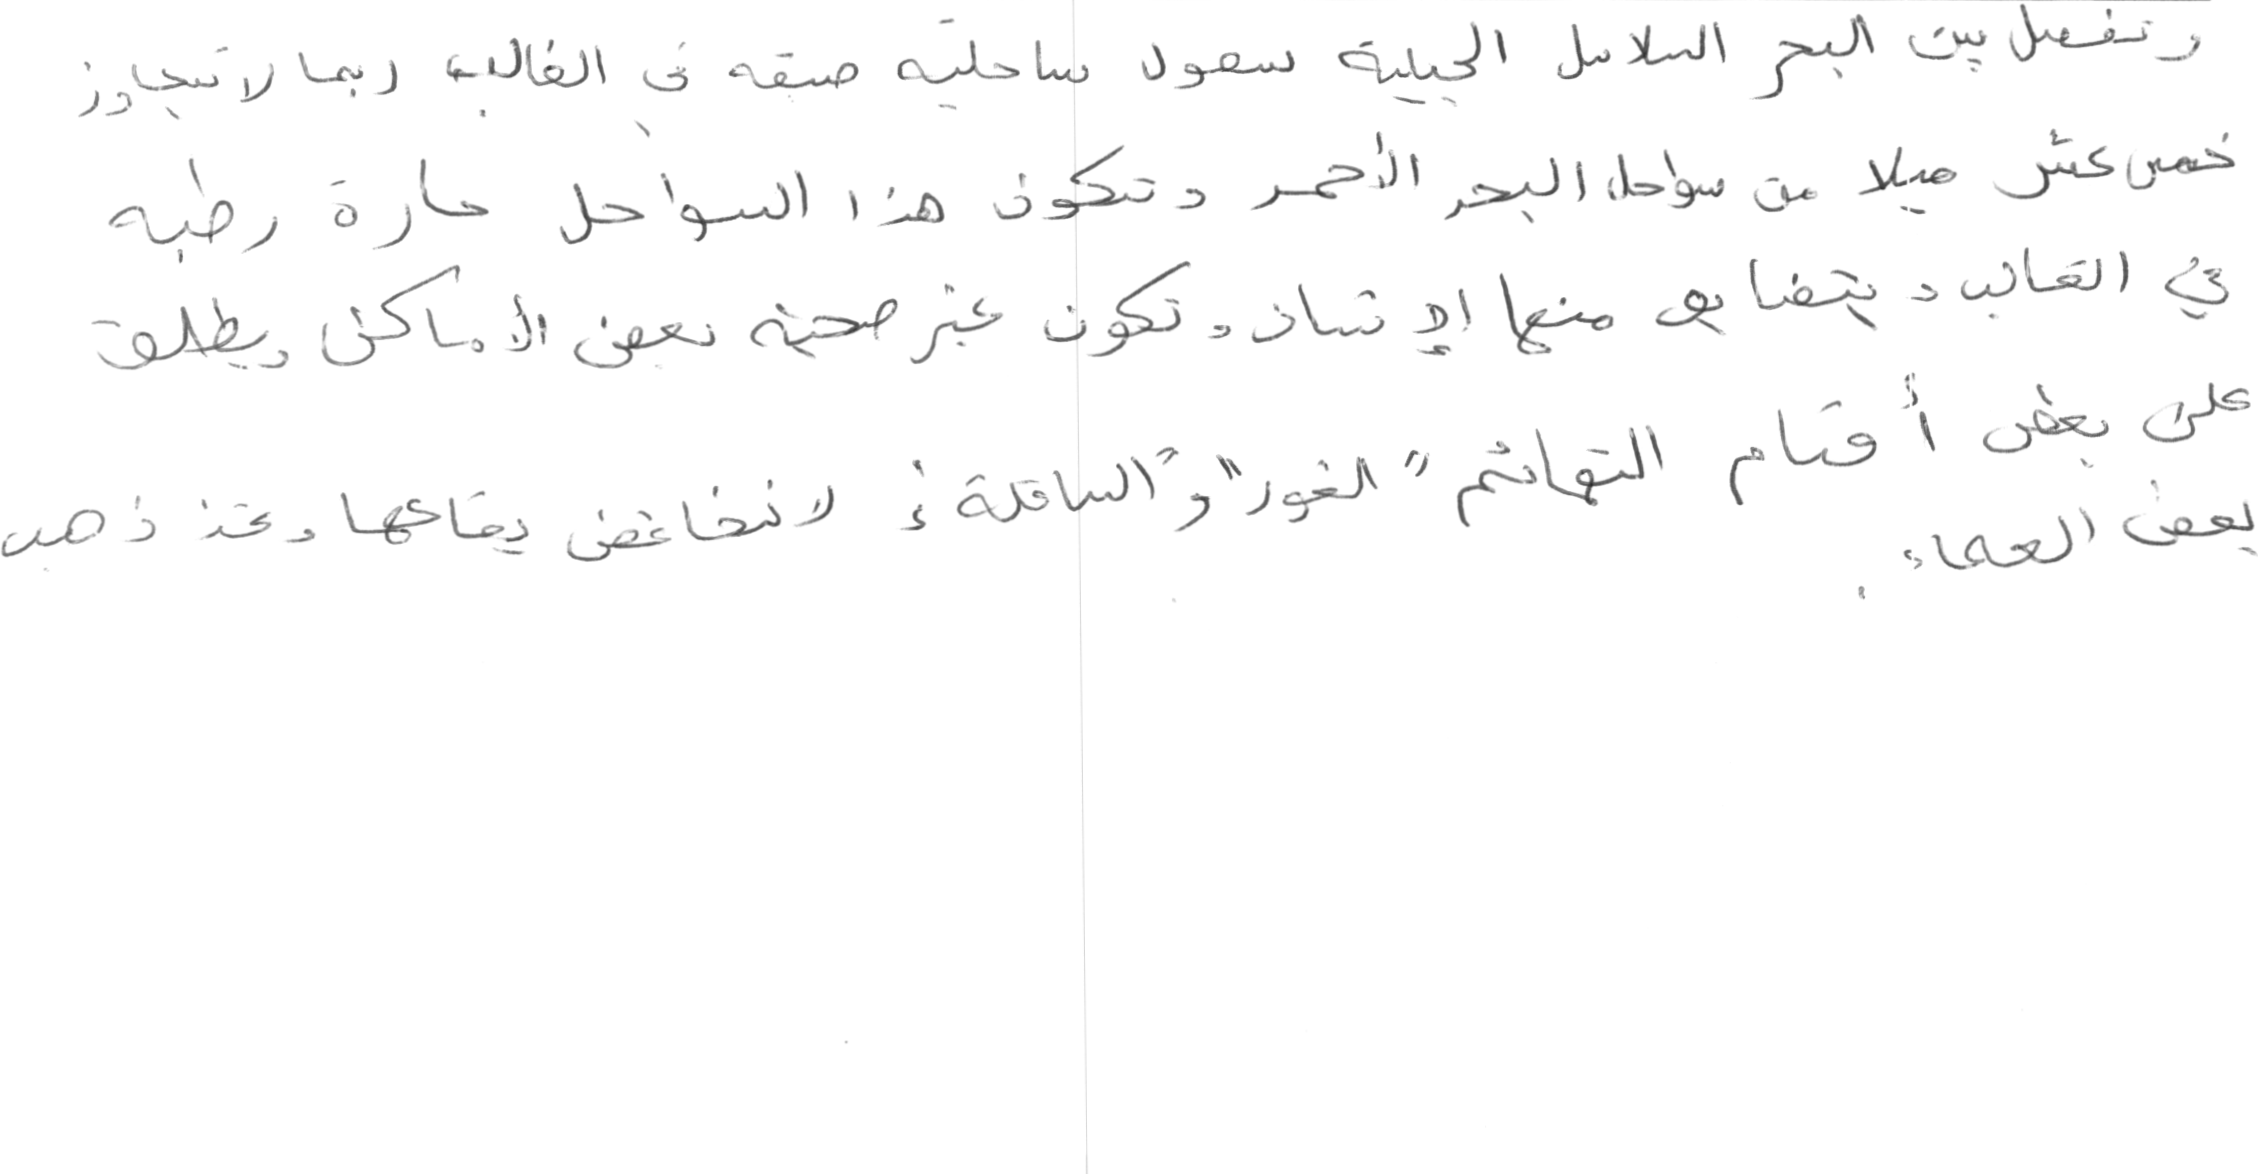 وتفصل بين البحر السلاسل الجبلية سهول ساحلية ضيقه في الغالب ربما لا تتجاوز
خمس عشر ميلا من سواحل البحر الأحمر وتكون هذا السواحل حارة رطبه
في الغالب ويتضايق منها الإنسان وتكون غير صحية بعض الأماكن ويطلق
على بعض أقسام التهائم "الغور" و"السافلة" لانخفاض بقاعها وقد ذهب
بعض العلماء.